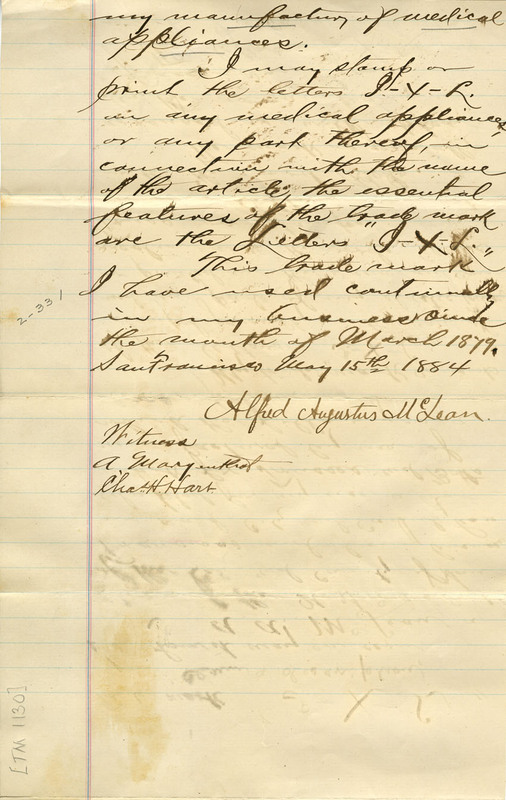 my manufactury of medical
appliances.
I may stamp or
print the letters I-X-L.
on any medical appliances,
or any part thereof, in
connection with the name
of the article, the essential
features of the trade mark
are the Letters "I-X-L."
This trade mark
I have used continually
in my business since
the month of March 1879.
San Francisco May 15th 1884
Alfred Augustus McLean.
Witness
A
Chas. H. Hart
2-331
[TM 1130]